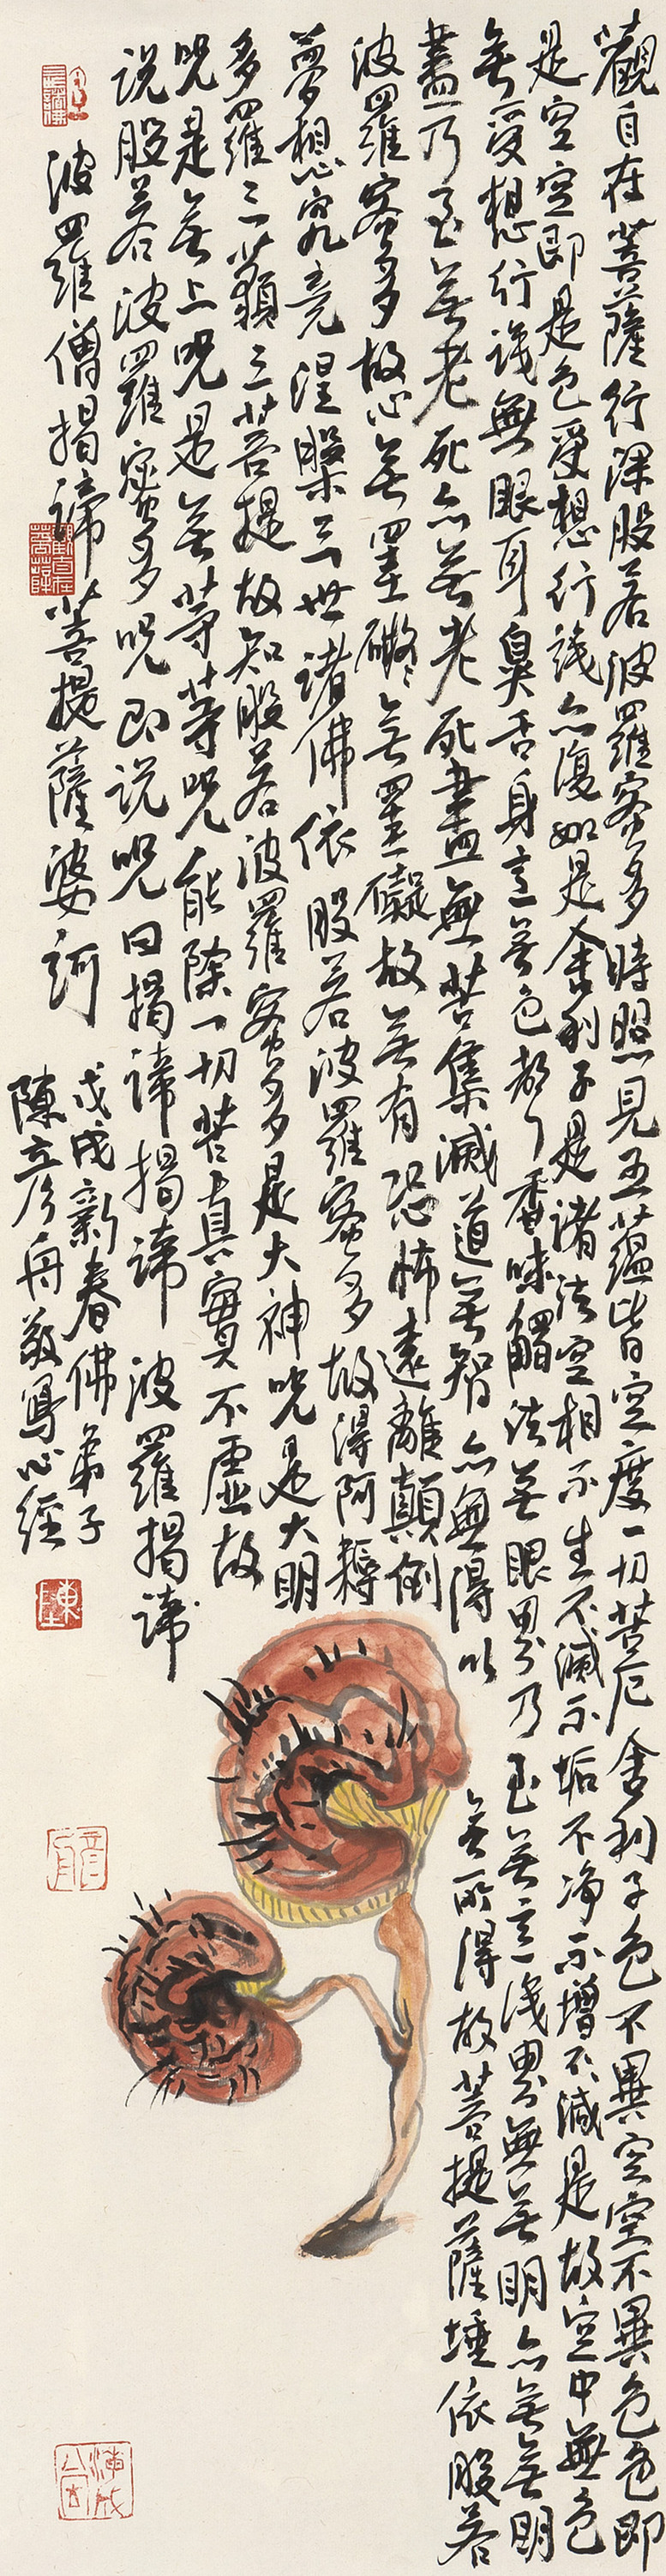 觀自在菩薩行深般若波羅密多時照見五蘊皆空度一切苦厄舍利子色不異空空不異色色即
是空空即是色受想行識亦復如是舍利子是諸法空相不生不滅不垢不净不增不減是故空中無色
無受想行識無眼耳鼻舌身意無色聲香味觸法無眼界乃至無意識界無無明亦無無明
盡乃至無老死亦無老死盡無苦集滅道無智亦無得以無所得故菩提薩埵依般若
波羅密多故心無罣礙無罣礙故無有恐怖遠離顛倒
夢想究竟涅槃三世諸佛依般若波羅蜜多故得阿耨
多羅三藐三菩提故知般若波羅蜜多是大神咒是大明
咒是無上咒是無等等咒能除一切苦真實不虛故
说般若波羅蜜多咒即说咒曰揭諦揭諦波羅揭諦
波羅僧揭諦菩提薩婆訶
觀自在菩薩
戊戌新春佛弟子
陳彥舟敬寫心經